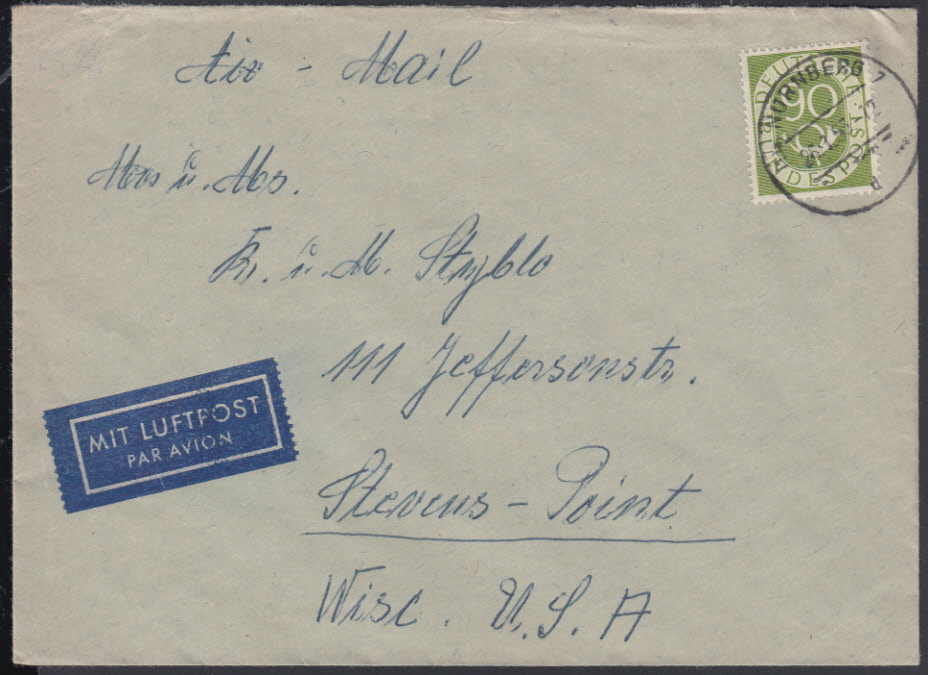 Air - Mail
DEUTSCHE BUNDESPOST
90
NÜRNBERG 7
Mrs u. Ms.
Fr. u. M. Styblo
111 Jeffersonstr.
MIT LUFTPOST
PAR AVION
Stevens-Point
Wisc. U.S.A